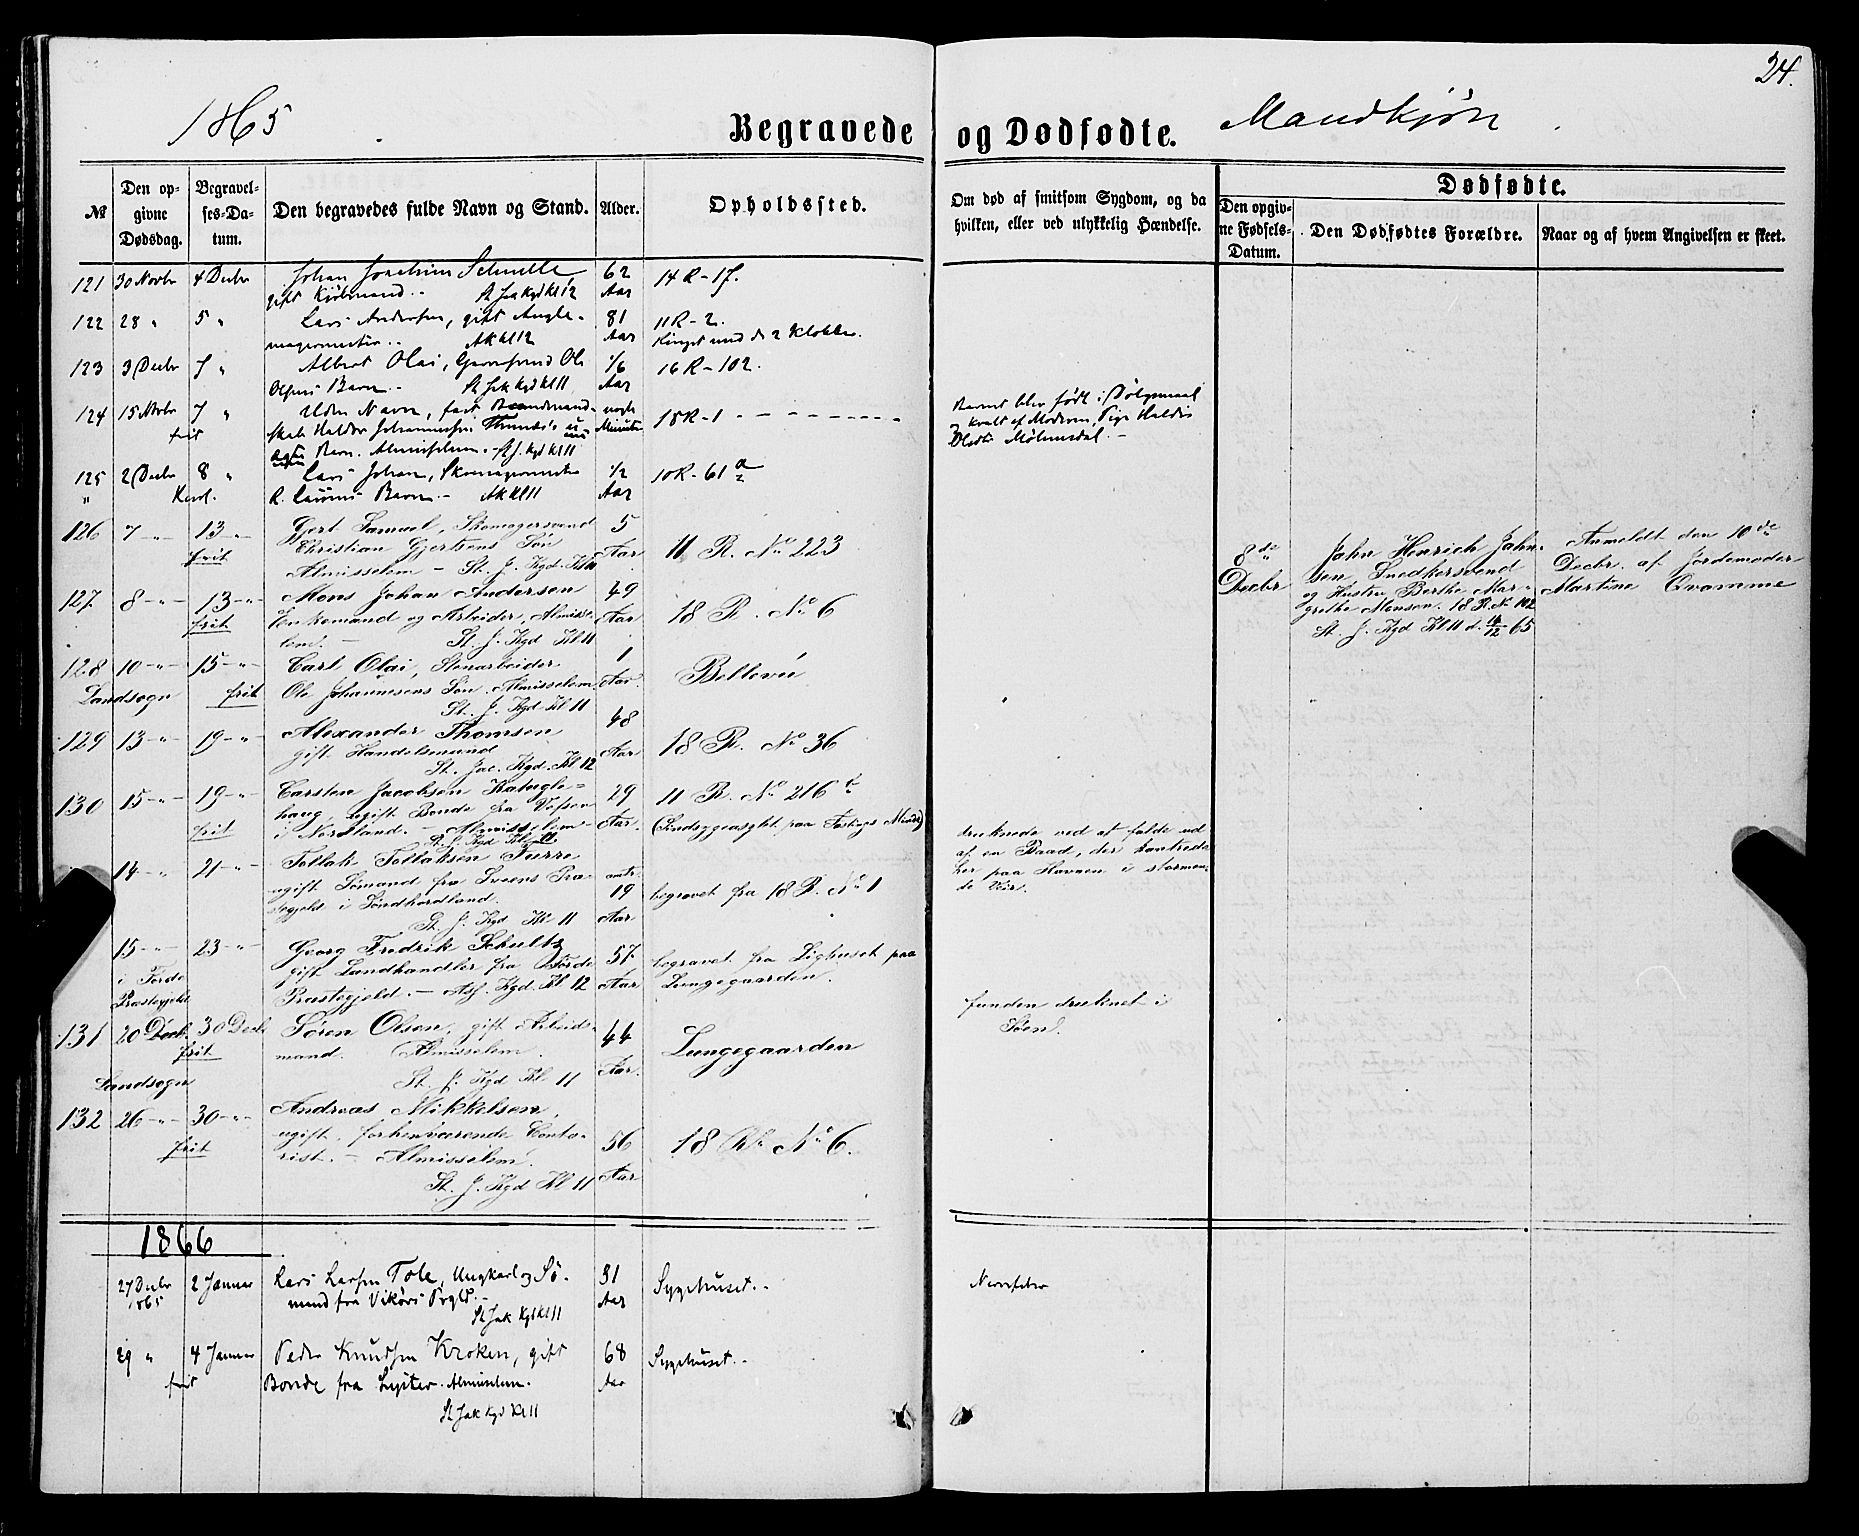 24.
1865
Begravede og Dødfødte. Mandkjøn
№
Den opgivne Dødsdag.
Begravelses-Datum.
Den begravedes fulde Navn og Stand.
Alder.
Opholdssted.
Om død af smitsom Sygdom, og da hvilken, eller ved ulykkelig Hændelse.
Dødfødte.
Den opgivne Fødsels-Datum.
Den Dødfødtes Forældre.
Naar og af hvem Angivelsen er skeet.
121 30 Novbr 4 Decbr Johan Joachim 62 14 R - 17.
gift Kjøbmand.. St Jak Kgd Kl 12 Aar
122 28 " 5 " Lars Andersen, gift 81 11 R - 2.
AK kl 12 Aar Ringet med de 2 Klokker.
123 3 Decbr 7 " Albert Olai, Ole 1/6 16 R - 102.
Olsens Barn.. St Jak Kgd Kl 11 Aar
124 15 Novbr 7 " Uden Navn, nogle 18 R - 1
frit Minuter
Barn. Almisselem. - St J. Kgd Kl 11
Barnet blev født i Dølgsmaal
og kvalt af Moderen, Pige
125 2 Decbr 8 " Lars Johan, Skomagermester 1/2 10 R - 61 a
" Barn. - AK Kl 11 Aar
126 7 - " - 13 - " - Gjert Samuel, Skomagersvend 5 11 R. No 223
frit Christian Gjertsens Søn Aar
Almisselem - St. J. Kgd. Kl 11
8de Decbr
Jahn Henrich Jahnsen, Snedkersvend
og Hustru Berthe Margrethe Monsen. 18 R. No 102
St. J. Kgd Kl 11 d. 14/12 65
Anmeldt den 10de
Decbr. af Jordemoder
Martine Qvamme
127 8 - " - 13 - " - Mons Johan Andersen 49 18 R. No 6
frit Enkemand og Arbeider, Almisse- Aar
lem. - St. J. Kgd Kl 11
128 10 - " - 15 - " - Carl Olai, Stenarbeider 1 Bellevü
Landsogn frit Ole Johannesens Søn. Almisselem Aar
St. J. Kgd Kl 11
129 13 - " - 19 - " - Alexander Thomsen 48 18 R. No 36
gift Handelsmand Aar
St. Jac. Kgd. Kl 12
130 15 - " - 19 - " - Carsten Jacobsen 29 11 R. No 216
frit ugift Bonde fra Vefsen Aar (Sindsygeasylet paa
i Nordland. - Almisselem -
St. J. Kgd Kl 11
14 - " - 21 - " - Tollak Tollaksen omtr. begravet fra 18 R. No 1
ugift Sømand fra Sveens Præ- 19
stegjeld i Søndhordland. Aar
St. J. Kgd Kl 11
druknede ved at falde ud
af en Baad, der kantrede
her paa Havnen i stormende Veir.
15 - " - 23 - " - Georg Fredrik Schultz 57 begravet fra Lighuset paa
i Førde gift Landhandler fra Førde Aar Lungegaarden.
Præstegjeld Præstegjeld. - Kgd. Kl. 12
funden druknet i
Søen.
131 20 Decb. 30 Decb. Søren Olsen, gift Arbeids- 44 Lungegaarden
frit mand. Almisselem. Aar.
Landsogn St. J. Kgd Kl 11
132 26 - " - 30 - " - Andreas Mikkelsen, 56 18 R. No 6.
frit ugift, forhenværende Conto- Aar
rist. - Almisselem.
St. J. Kgd Kl 11
1866
27 Decbr 1865 2 Januar Lars Larsen Tole, Ungkarl og Sø- 31 Sygehuset.
mand fra Vikørs Prgld. - Aar
St Jak Kgd Kl 11
Nervefeber
29 " 4 Januar Peder Knudsen Kroken, gift 68 Sygehuset.
frit Bonde fra Lyster. Almisselem. Aar
St Jak Kgd Kl 11